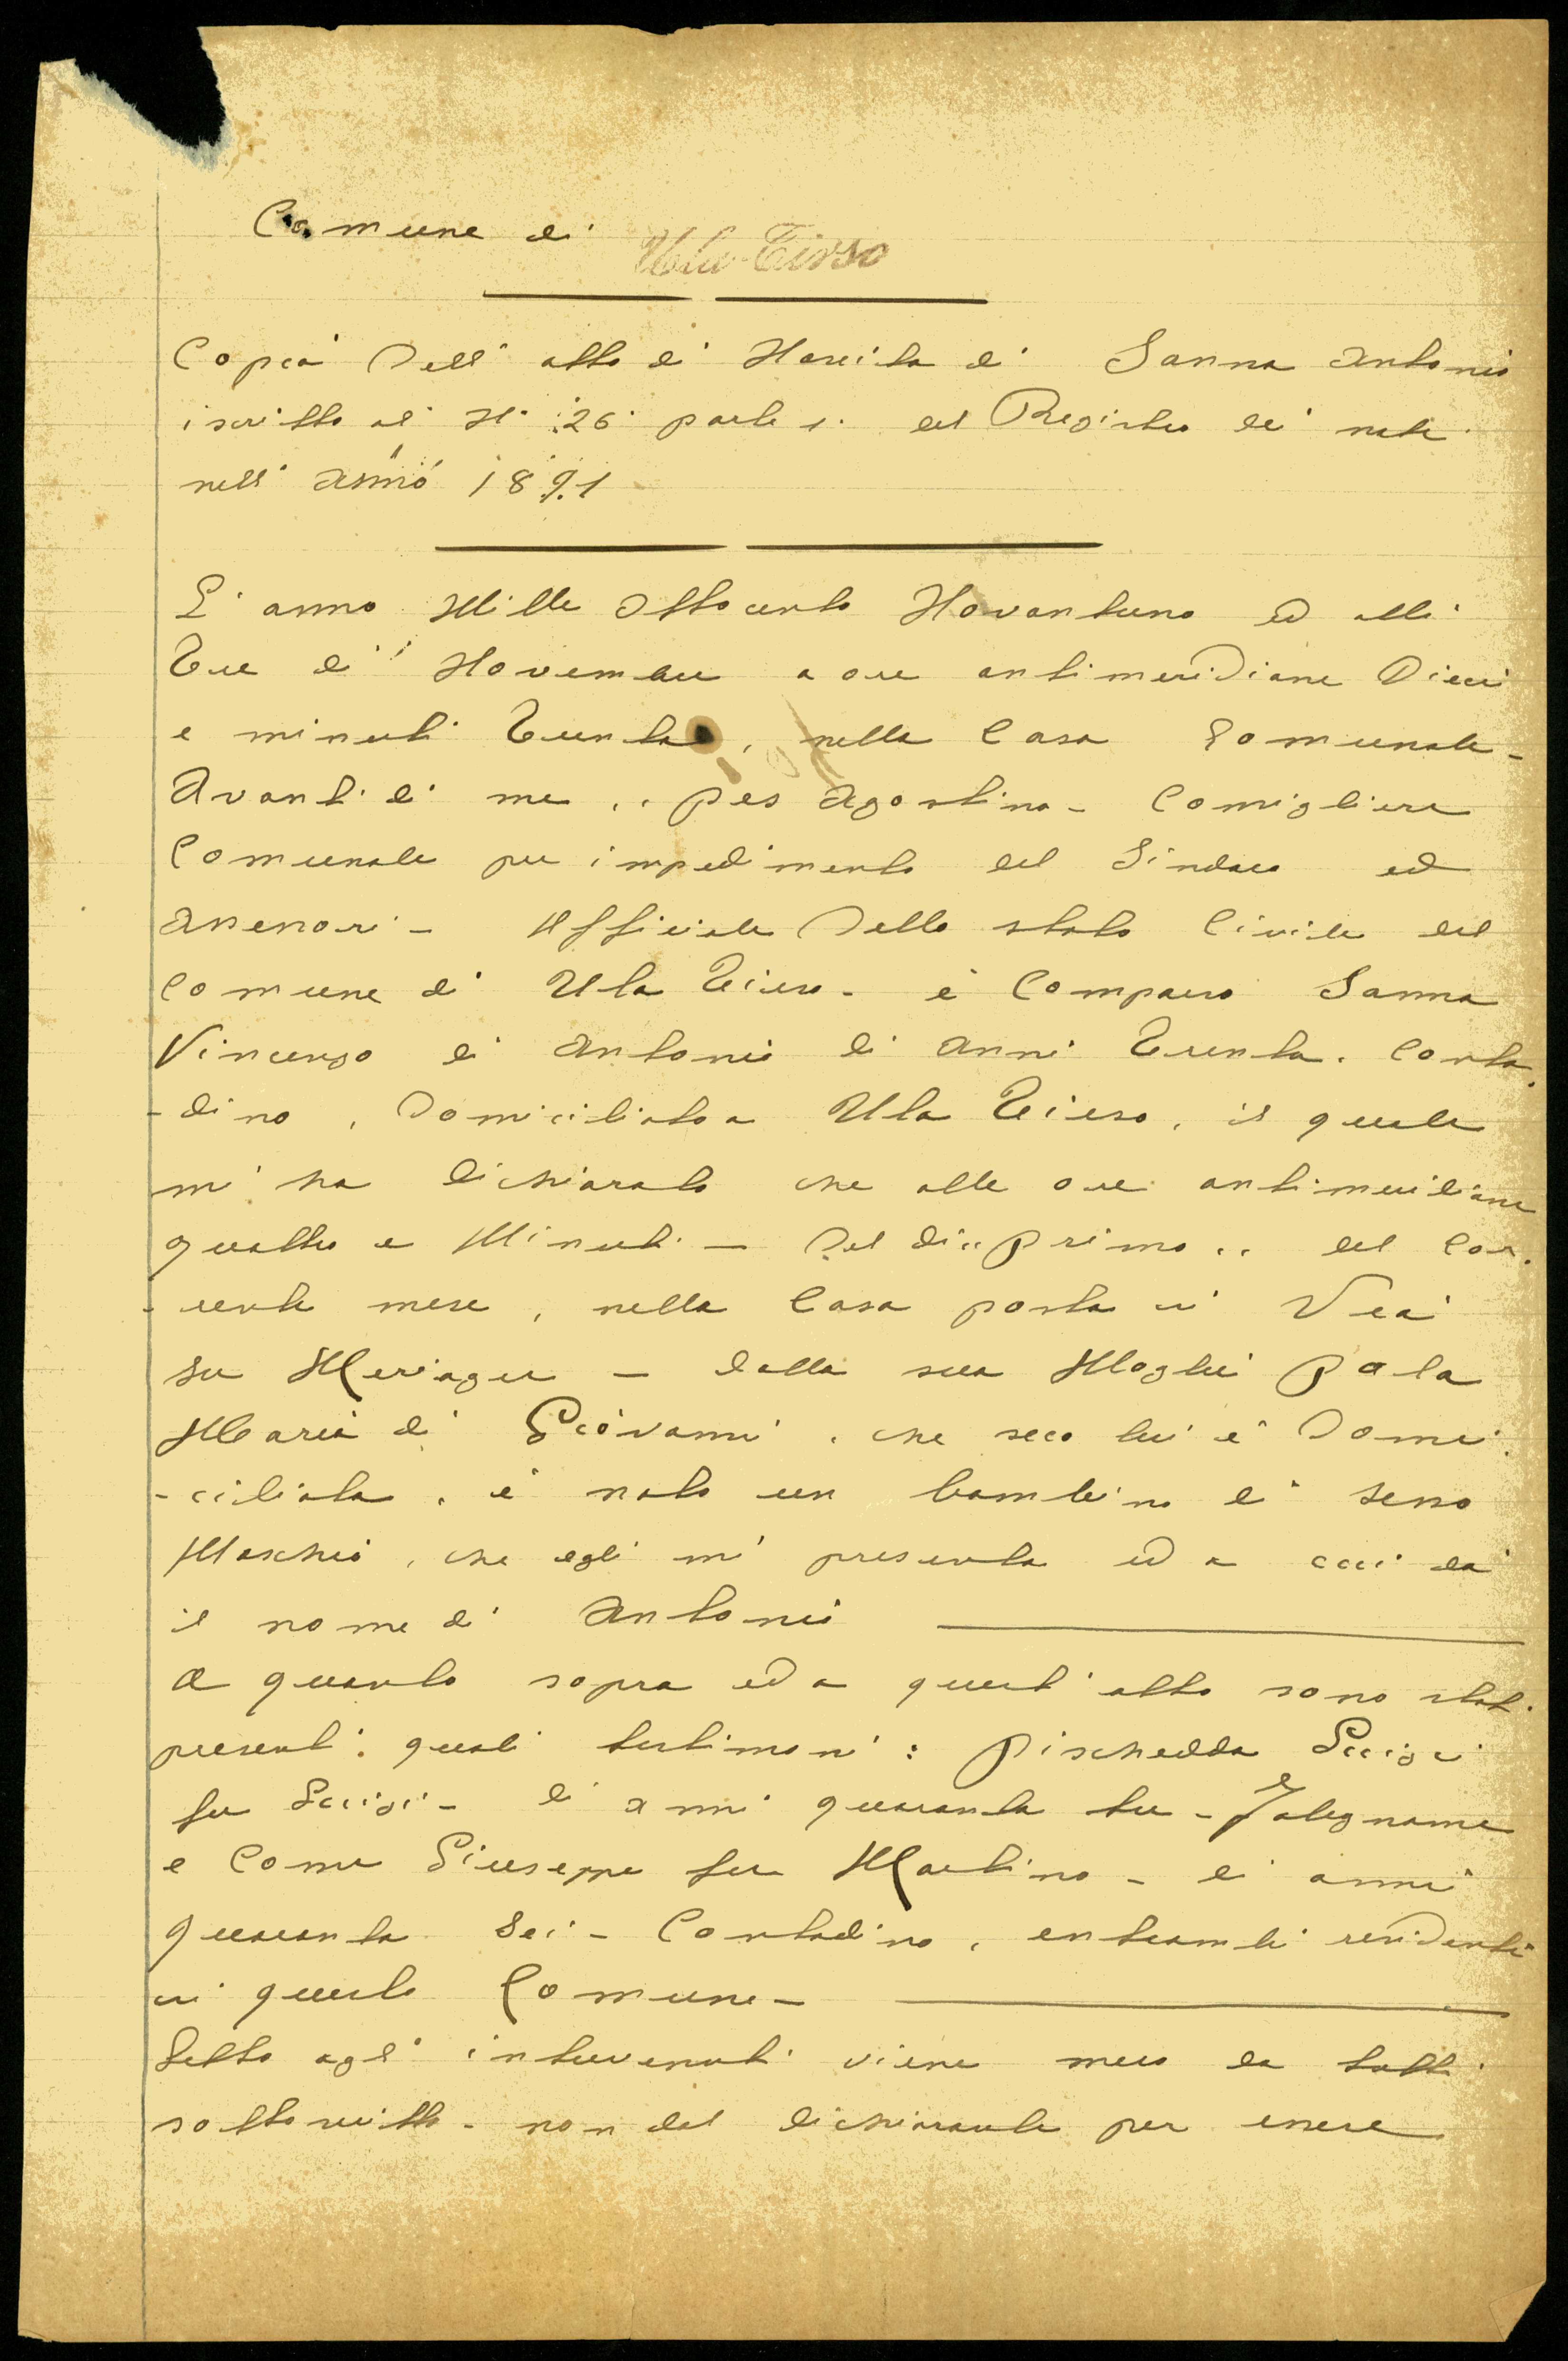 Comune di Ula-Tirso
Copia Dell' atto di Nascita di Sanna Antonio
iscritto al N. 26 parte 1. del Registro dei nati
nell' anno 1891
L' anno Mille Ottocento Novantuno ed alli
Tre di Novembre a ore antimeridiane Dieci
e minuti Trenta, nella Casa Comunale -
Avanti di me .. Pes Agostino - Consigliere
Comunale per impedimento del Sindaco ed
Assessori - Ufficiale Dello stato Civile del
Comune di Ula Tirso - è Comparso Sanna
Vincenzo di Antonio di anni Trenta. Conta
-dino, Domiciliato a Ula Tirso, il quale
mi ha dichiarato che alle ore antimeridiane
quattro e Minuti - Del di .. primo .. del Cor
-rente mese, nella Casa posta in Via
su - dalla sua Moglie Pala
Maria di Giovanni, che seco lui è Domi
-ciliata, è nato un bambino di sesso
Maschio, che egli mi presenta ed a cui da
il nome di Antonio
A quanto sopra ed a quest' atto sono stati
presenti quali testimoni: Pischedda Luigi
fu Luigi - di anni quaranta tre - Falegname
e Giuseppe fu Martino - di anni
quaranta Sei - Contadino, entrambi residenti
in questo Comune -
Letto agli intervenuti viene meco da tutti
sottoscritto - non dal dichiarante per essere